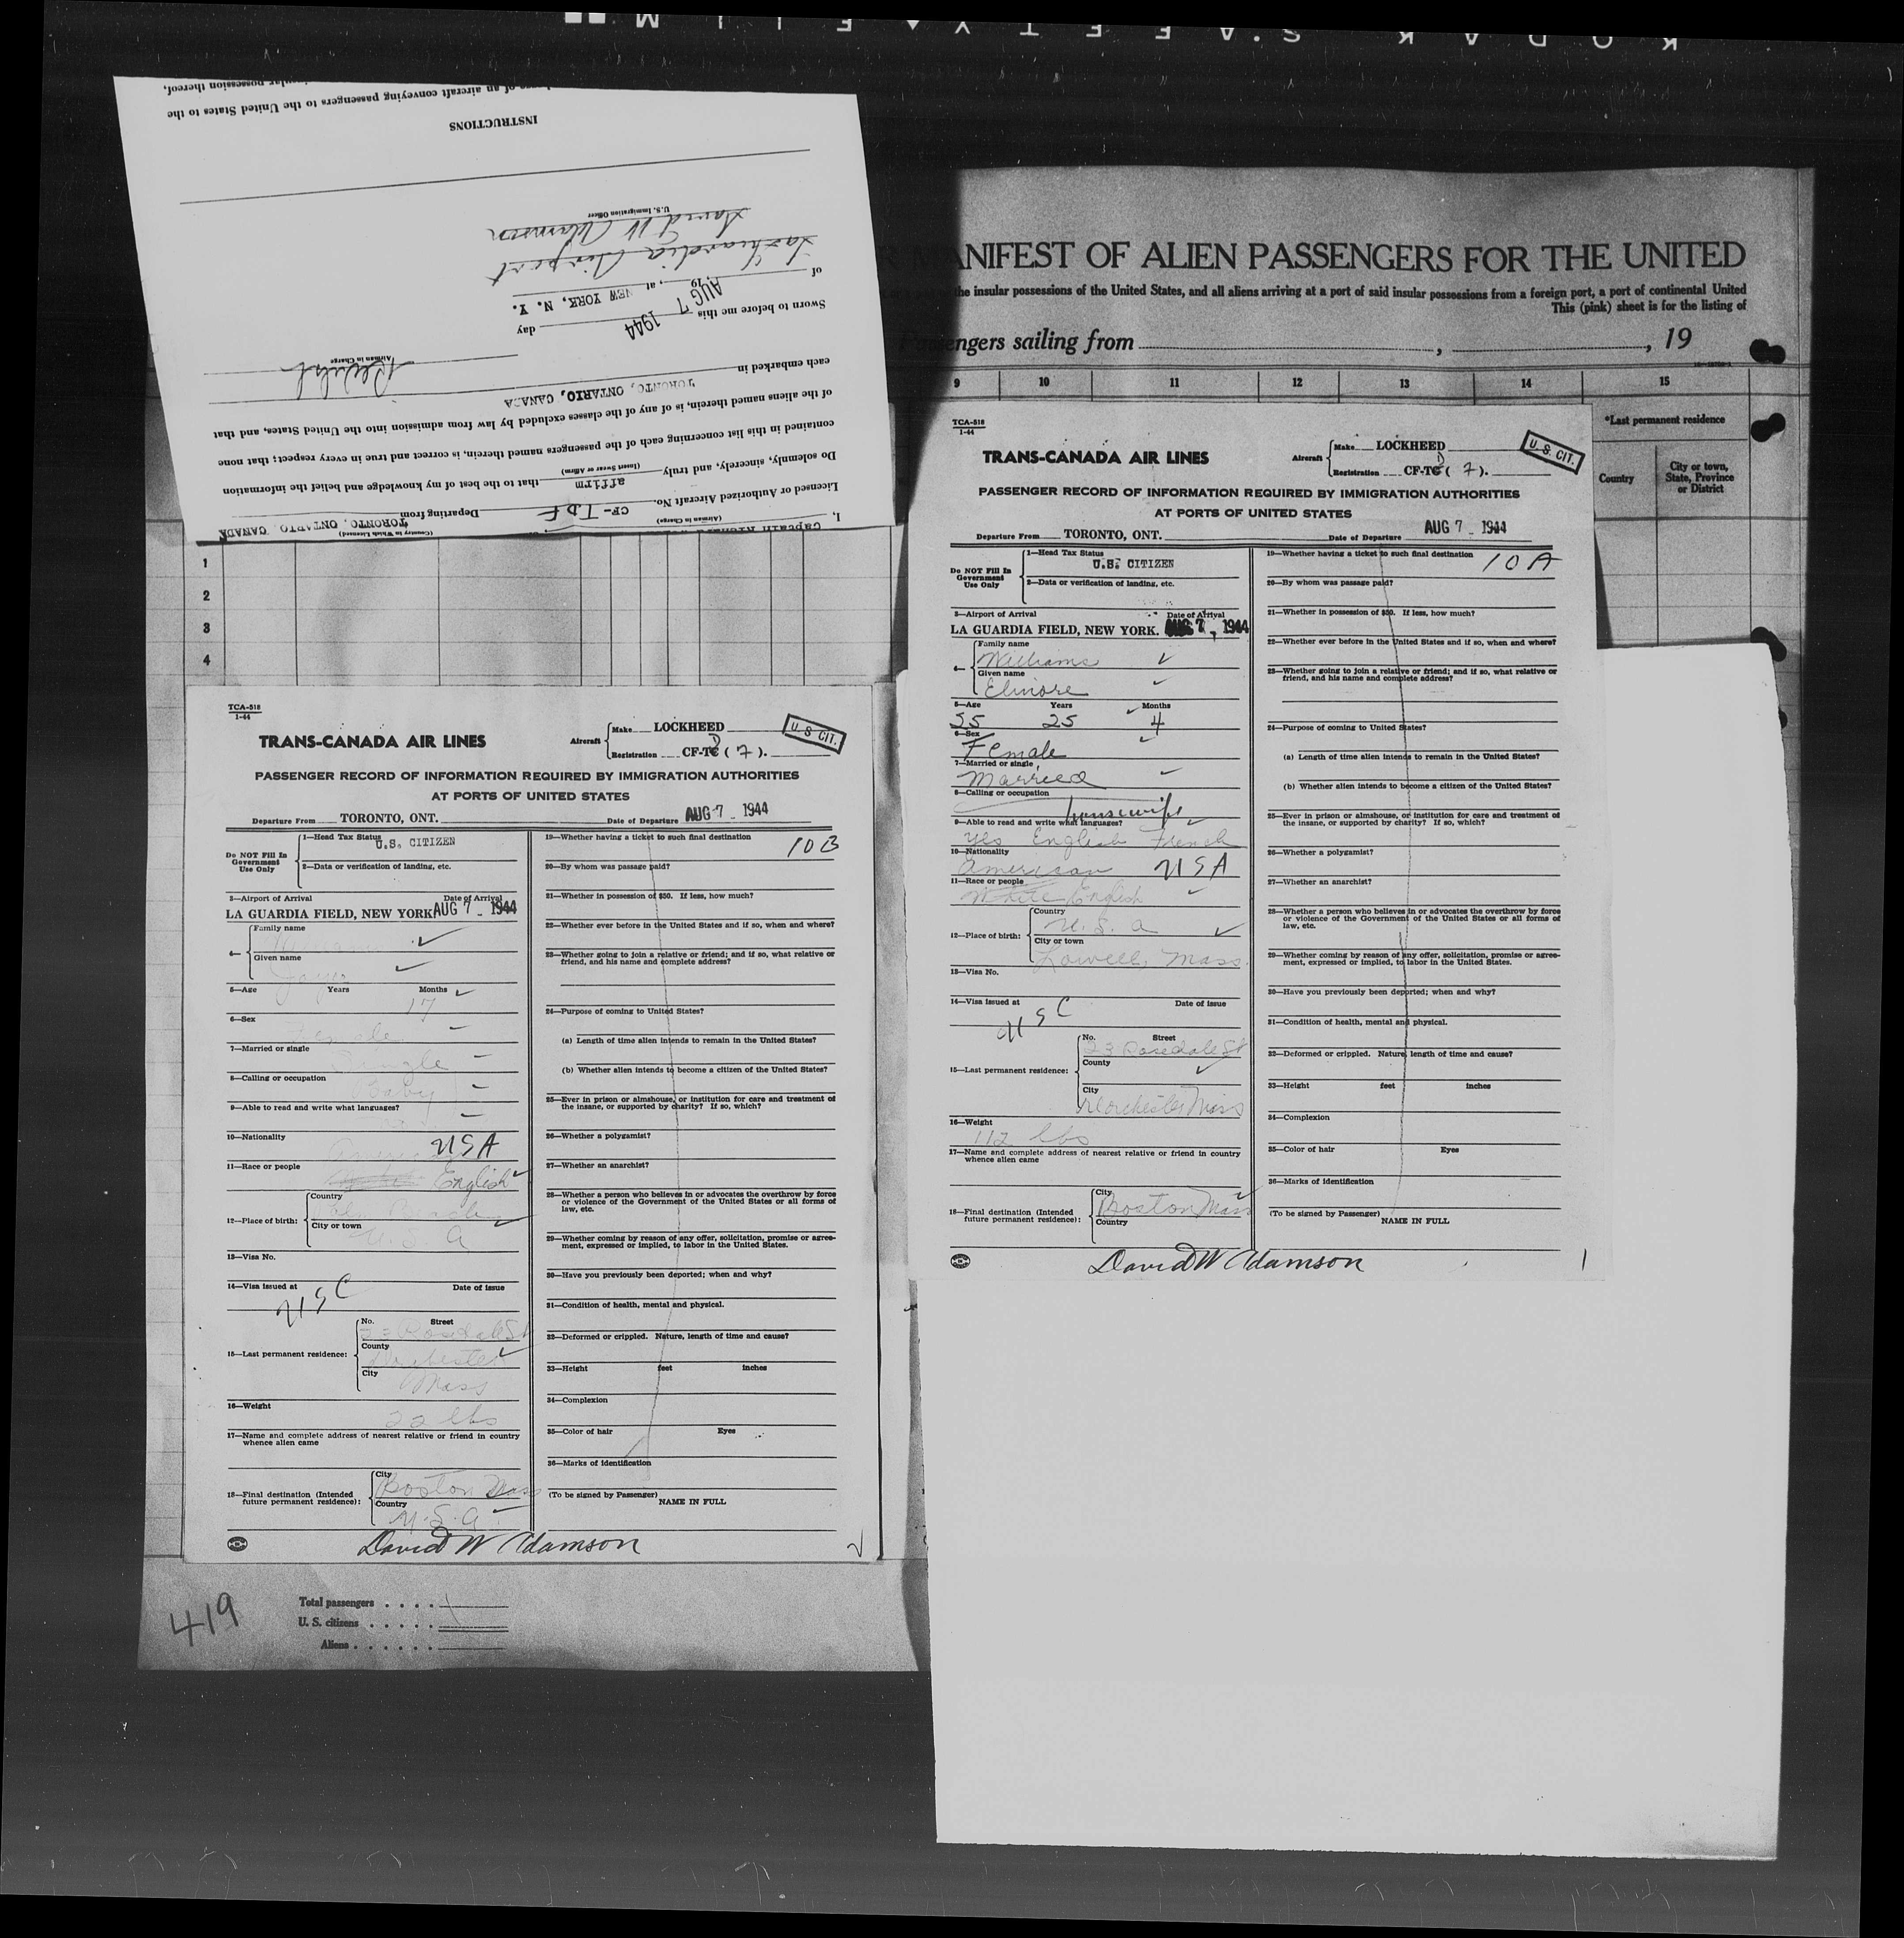 KODAK SAFETY FILM
of an aircraft conveying passengers to the United States to the
INSTRUCTIONS
U.S. Immigration Officer
David W Adamson
LaGuardia Airport
of
19 , at NEW YORK, N. Y.
Sworn to before me this AUG 7 1944 day
Airman in Charge
each embarked in TORONTO, ONTARIO, CANADA
of the aliens named therein, is of any of the classes excluded by law from admission into the United States, and that
contained in this list concerning each of the passengers named therein, is correct and true in every respect; that none
Do solemnly, sincerely, and truly affirm that to the best of my knowledge and belief the information
(Insert Swear or Affirm)
Licensed or Authorized Aircraft No. CF-TDF Departing from TORONTO, ONTARIO, CANADA
(Airman in Charge) (Country in Which Licensed)
I, Captain
MANIFEST OF ALIEN PASSENGERS FOR THE UNITED
the insular possessions of the United States, and all aliens arriving at a port of said insular possessions from a foreign port, a port of continental United
This (pink) sheet is for the listing of
Passengers sailing from , , 19
9 10 11 12 13 14 15
*Last permanent residence
Country
City or town, State, Province or District
1
2
3
4
TCA-518
1-44
TRANS-CANADA AIR LINES
Aircraft Make LOCKHEED
Registration CF-TD ( 7 ).
U. S. CIT.
PASSENGER RECORD OF INFORMATION REQUIRED BY IMMIGRATION AUTHORITIES
AT PORTS OF UNITED STATES
Departure From TORONTO, ONT. Date of Departure AUG 7 - 1944
Do NOT Fill In Government Use Only
1—Head Tax Status U.S. CITIZEN
2—Data or verification of landing, etc.
3—Airport of Arrival Date of Arrival
LA GUARDIA FIELD, NEW YORK. AUG 7 - 1944
4— Family name
Given name Joyce
5—Age Years Months
17
6—Sex
Female
7—Married or single
Single
8—Calling or occupation
Baby
9—Able to read and write what languages?
10—Nationality
American USA
11—Race or people
White English
12—Place of birth: Country
City or town
U. S. A
13—Visa No.
14—Visa issued at Date of issue
USC
15—Last permanent residence: No. Street
23 Rosedale St
County
Dorchester
City
Mass
16—Weight
22 lbs
17—Name and complete address of nearest relative or friend in country whence alien came
18—Final destination (Intended future permanent residence): City
Boston Mass
Country
U. S. A.
19—Whether having a ticket to such final destination 10B
20—By whom was passage paid?
21—Whether in possession of $50. If less, how much?
22—Whether ever before in the United States and if so, when and where?
23—Whether going to join a relative or friend; and if so, what relative or friend, and his name and complete address?
24—Purpose of coming to United States?
(a) Length of time alien intends to remain in the United States?
(b) Whether alien intends to become a citizen of the United States?
25—Ever in prison or almshouse, or institution for care and treatment of the insane, or supported by charity? If so, which?
26—Whether a polygamist?
27—Whether an anarchist?
28—Whether a person who believes in or advocates the overthrow by force or violence of the Government of the United States or all forms of law, etc.
29—Whether coming by reason of any offer, solicitation, promise or agreement, expressed or implied, to labor in the United States.
30—Have you previously been deported; when and why?
31—Condition of health, mental and physical.
32—Deformed or crippled. Nature, length of time and cause?
33—Height feet inches
34—Complexion
35—Color of hair Eyes
36—Marks of identification
(To be signed by Passenger) NAME IN FULL
David W Adamson
419
Total passengers
U. S. citizens
Aliens
TCA-518
1-44
TRANS-CANADA AIR LINES
Aircraft Make LOCKHEED
Registration CF-TD ( 7 ).
U. S. CIT.
PASSENGER RECORD OF INFORMATION REQUIRED BY IMMIGRATION AUTHORITIES
AT PORTS OF UNITED STATES
Departure From TORONTO, ONT. Date of Departure AUG 7 - 1944
Do NOT Fill In Government Use Only
1—Head Tax Status
U.S. CITIZEN
2—Data or verification of landing, etc.
3—Airport of Arrival Date of Arrival
LA GUARDIA FIELD, NEW YORK. AUG 7, 1944
4— Family name
Williams
Given name
Elinore
5—Age Years Months
25 25 4
6—Sex
Female
7—Married or single
Married
8—Calling or occupation
housewife
9—Able to read and write what languages?
Yes English French
10—Nationality
American USA
11—Race or people
White English
12—Place of birth: Country
U. S. A
City or town
Lowell, Mass.
13—Visa No.
14—Visa issued at Date of issue
USC
15—Last permanent residence: No. Street
23 Rosedale St
County
City
Dorchester Mass
16—Weight
112 lbs
17—Name and complete address of nearest relative or friend in country whence alien came
18—Final destination (Intended future permanent residence): City
Boston Mass
Country
19—Whether having a ticket to such final destination 10A
20—By whom was passage paid?
21—Whether in possession of $50. If less, how much?
22—Whether ever before in the United States and if so, when and where?
23—Whether going to join a relative or friend; and if so, what relative or friend, and his name and complete address?
24—Purpose of coming to United States?
(a) Length of time alien intends to remain in the United States?
(b) Whether alien intends to become a citizen of the United States?
25—Ever in prison or almshouse, or institution for care and treatment of the insane, or supported by charity? If so, which?
26—Whether a polygamist?
27—Whether an anarchist?
28—Whether a person who believes in or advocates the overthrow by force or violence of the Government of the United States or all forms of law, etc.
29—Whether coming by reason of any offer, solicitation, promise or agreement, expressed or implied, to labor in the United States.
30—Have you previously been deported; when and why?
31—Condition of health, mental and physical.
32—Deformed or crippled. Nature, length of time and cause?
33—Height feet inches
34—Complexion
35—Color of hair Eyes
36—Marks of identification
(To be signed by Passenger) NAME IN FULL
David W Adamson